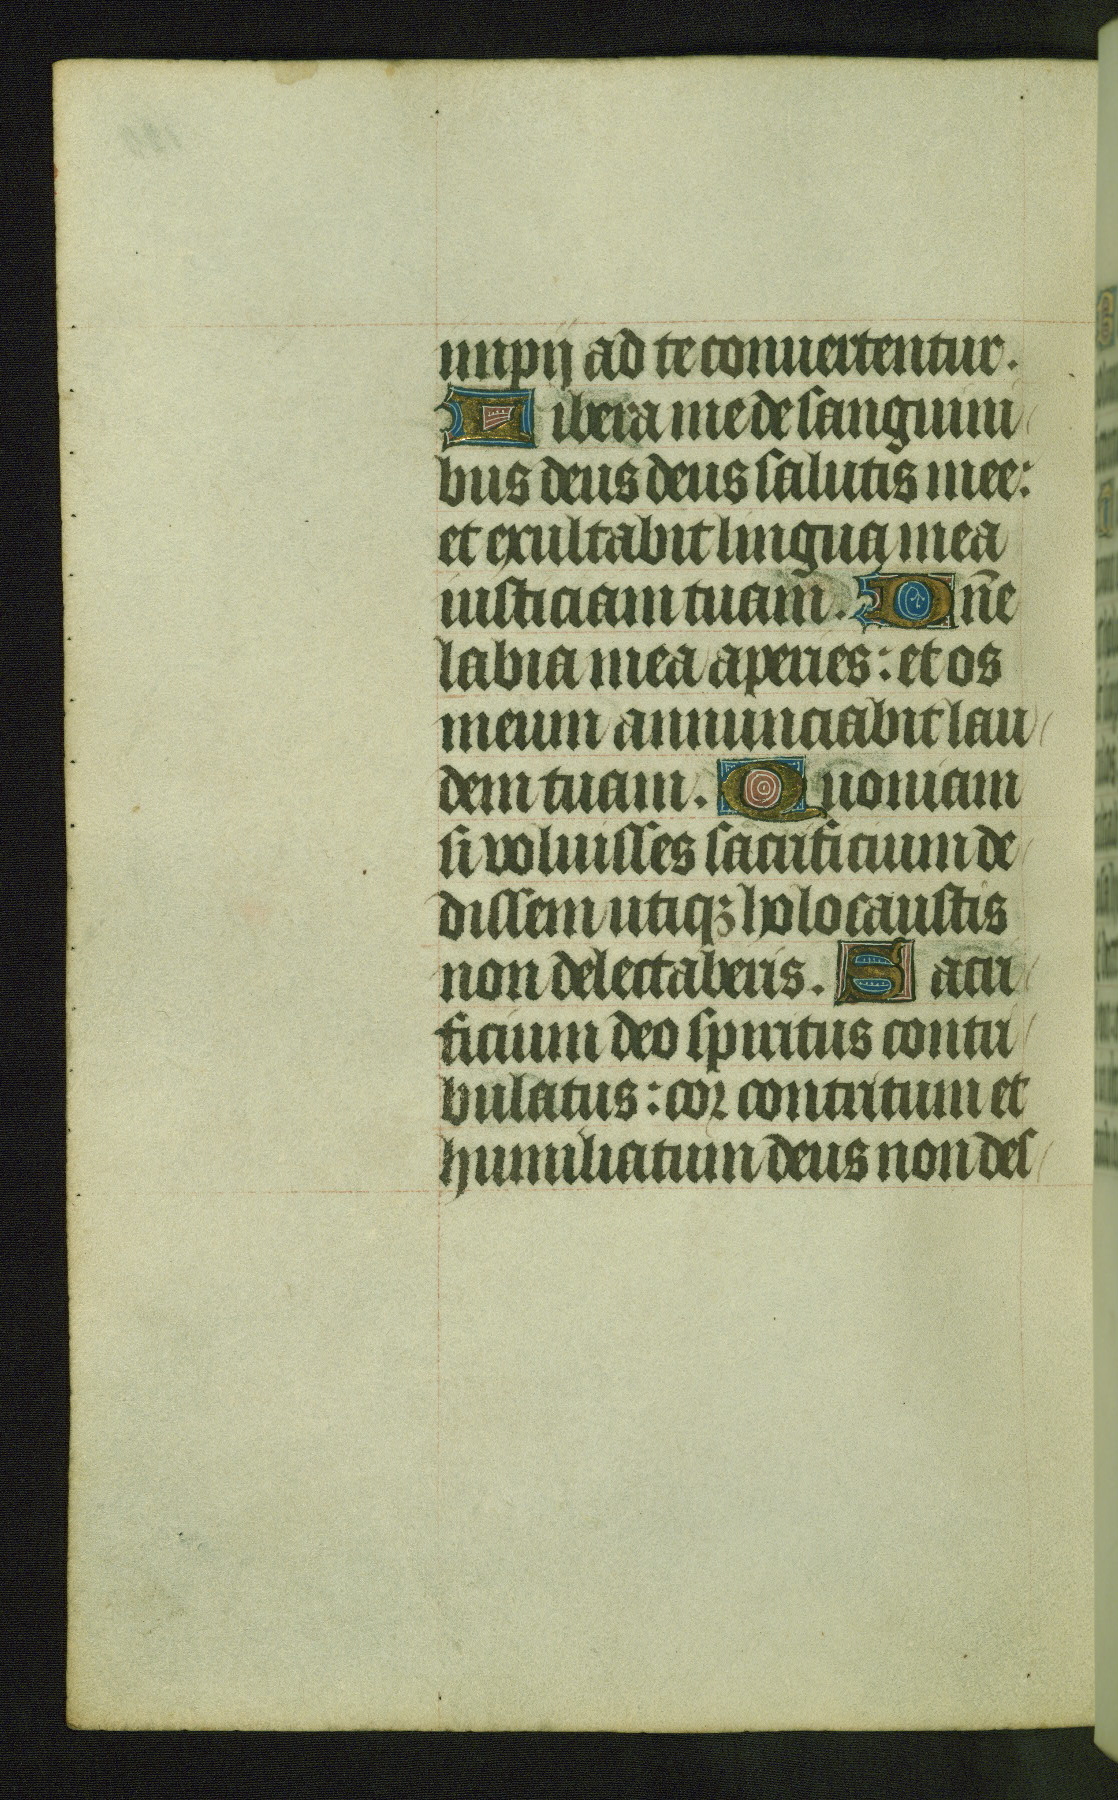 impij ad te conuertentur.
Libera me de sanguini
bus deus deus salutis mee:
et exultabit lingua mea
iusticiam tuam. Dn̄e
labia mea aperies: et os
meum annunciabit lau
dem tuam. Quoniam
si voluisses sacrificium de
dissem utiqꝫ holocaustis
non delectaberis. Sacri
ficium deo spiritus contri
bulatus: cor contritum et
humiliatum deus non des